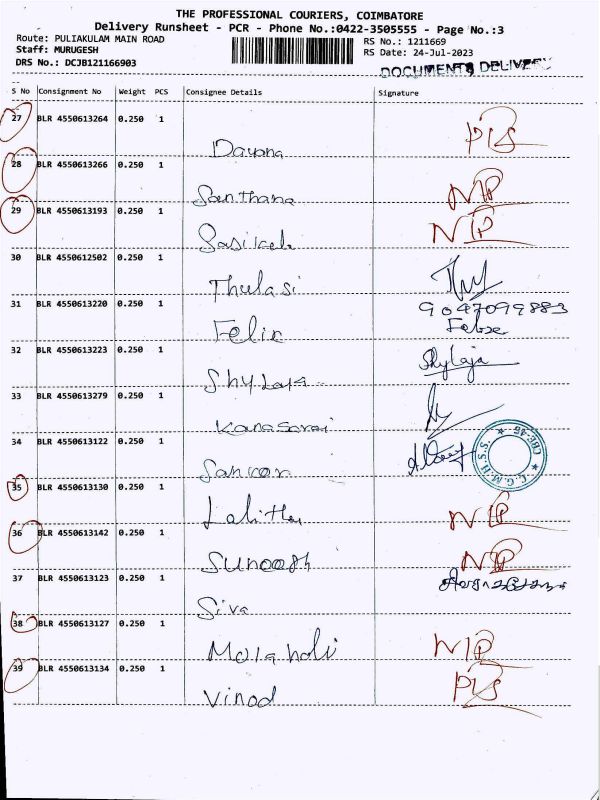 THE PROFESSIONAL COURIERS, COIMBATORE
Delivery Runsheet - PCR - Phone No.:0422-3505555 - Page No.:3
Route: PULIAKULAM MAIN ROAD RS No.: 1211669
Staff: MURUGESH RS Date: 24-Jul-2023
DRS No.: DCJB121166903 DOCUMENTS DELIVERY
S No Consignment No Weight PCS Consignee Details Signature
27 BLR 4550613264 0.250 1
Dayana
28 BLR 4550613266 0.250 1
Santhana NIP
29 BLR 4550613193 0.250 1 NIP
Sasikala
30 BLR 4550612502 0.250 1
Thulasi
31 BLR 4550613220 0.250 1 9047099883
Felix
32 BLR 4550613223 0.250 1 Shylaja
Shylaja
33 BLR 4550613279 0.250 1
34 BLR 4550613122 0.250 1 C.G.M.H.S.S. CBE-45
35 BLR 4550613130 0.250 1
Lalitha NIP
36 BLR 4550613142 0.250 1 NIP
37 BLR 4550613123 0.250 1
Siva
38 BLR 4550613127 0.250 1 NIP
39 BLR 4550613134 0.250 1
Vinod